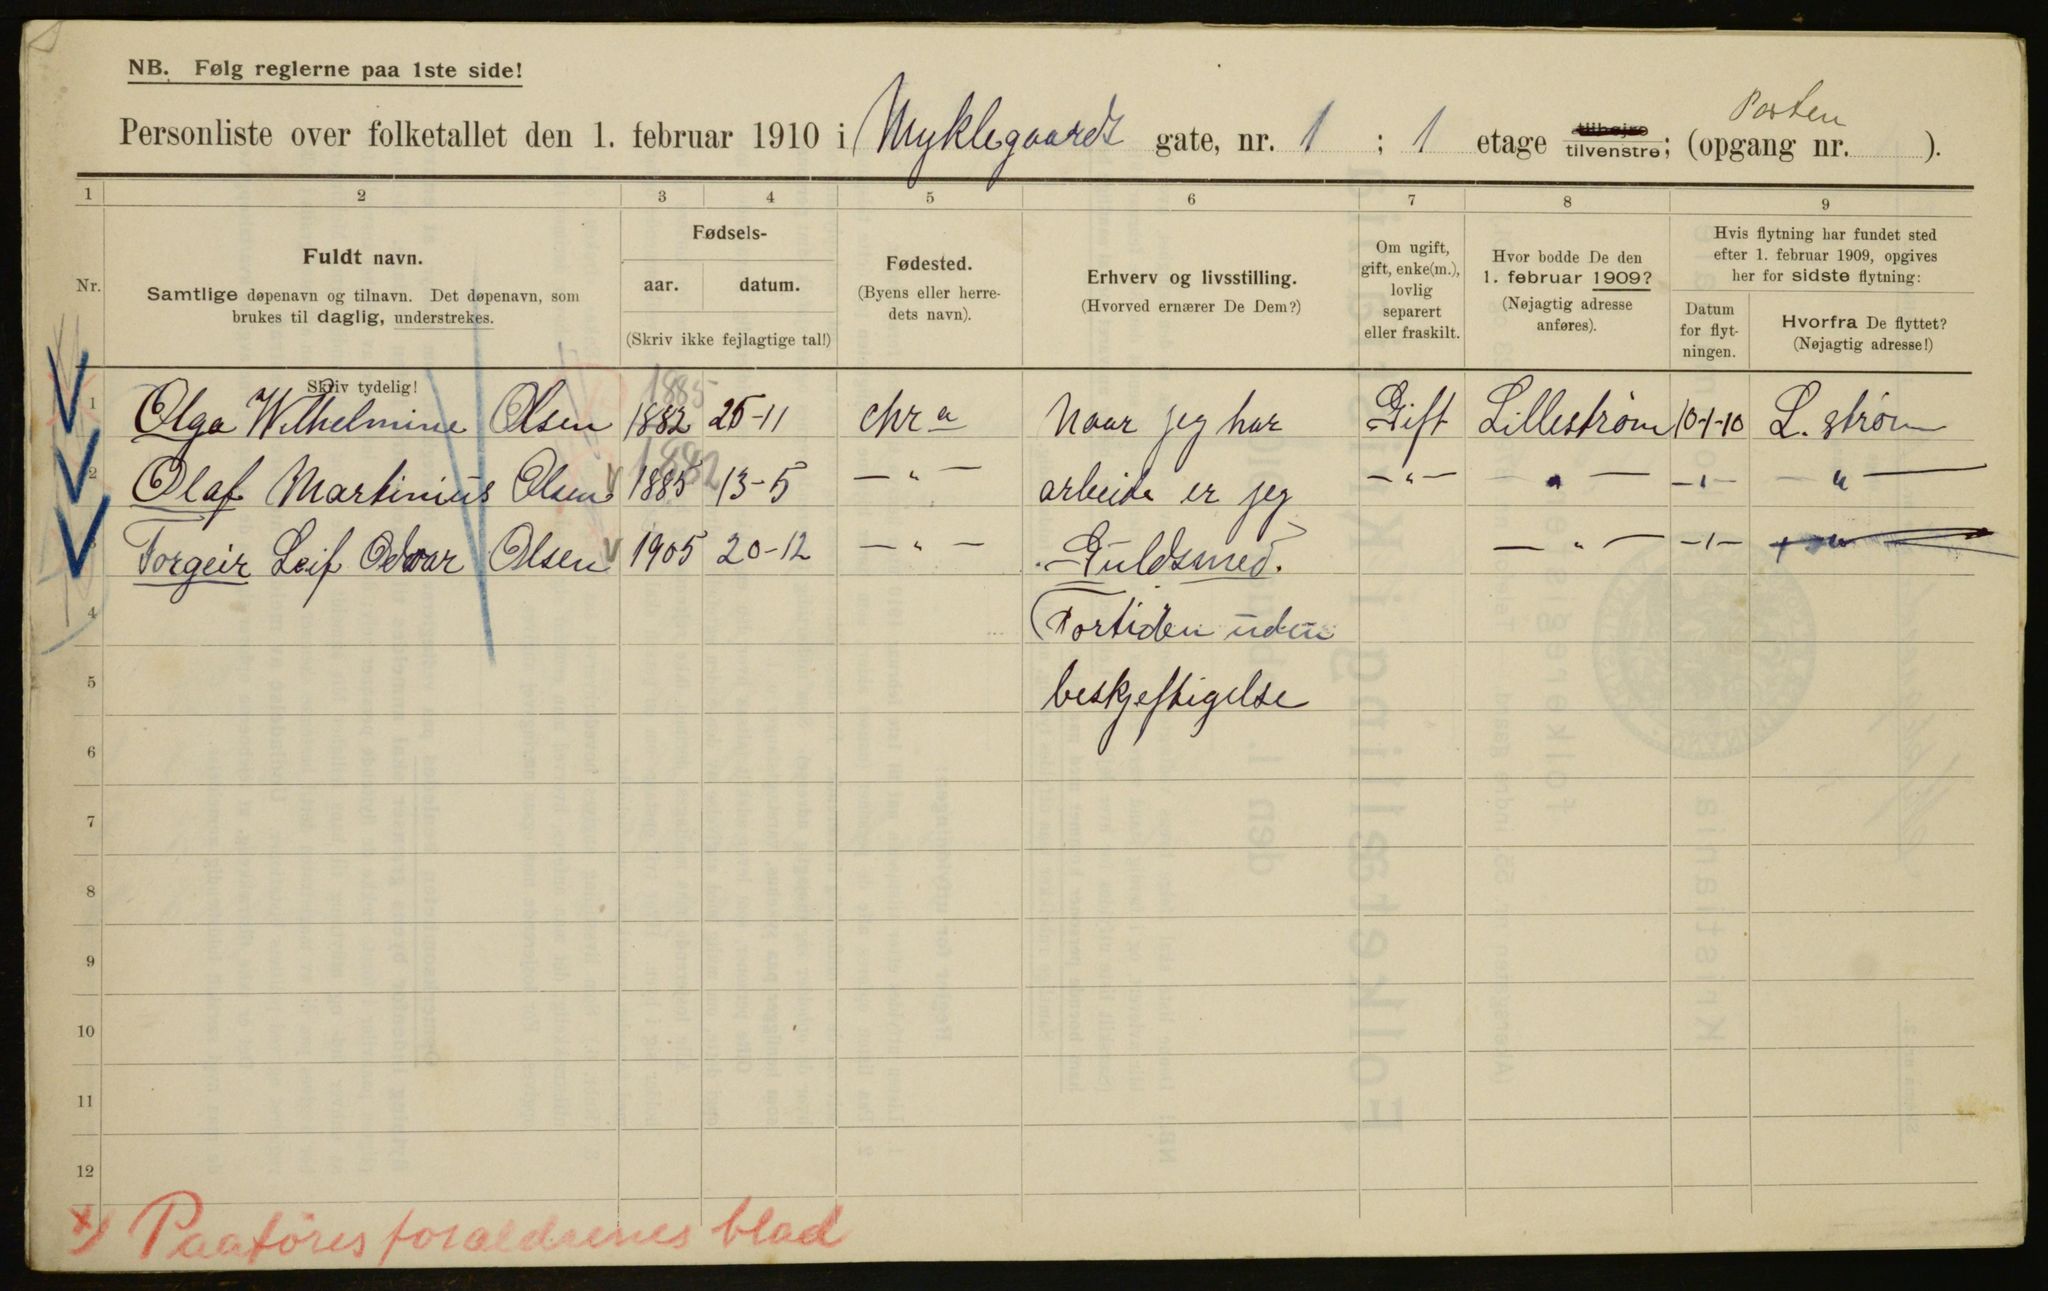 NB. Følg reglerne paa 1ste side!
Porten
Personliste over folketallet den 1. februar 1910 i Myklegaards gate, nr. 1 ; 1 etage tilhøjre tilvenstre; (opgang nr. ).
1 2 3 4 5 6 7 8 9
Nr.
Fuldt navn.
Samtlige døpenavn og tilnavn. Det døpenavn, som
brukes til daglig, understrekes.
Skriv tydelig!
Fødsels-
aar. datum.
(Skriv ikke fejlagtige tal!)
Fødested.
(Byens eller herre-
dets navn).
Erhverv og livsstilling.
(Hvorved ernærer De Dem?)
Om ugift,
gift, enke(m.),
lovlig
separert
eller fraskilt.
Hvor bodde De den
1. februar 1909?
(Nøjagtig adresse
anføres).
Hvis flytning har fundet sted
efter 1. februar 1909, opgives
her for sidste flytning:
Datum
for flyt-
ningen.
Hvorfra De flyttet?
(Nøjagtig adresse!)
1885
1 Olga Wilhelmine Olsen 1882 25-11 Chr a Naar jeg har Gift Lillestrøm 10-1-10 L. strøm
1882
2 Olaf Martinius Olsen 1885 13-5 — " — arbeide er jeg — " — — " — -1- — " —
3 Torgeir Leif Odvar Olsen 1905 20-12 — " — Guldsmed. — " — -1-
4 Fortiden uden
5 beskjeftigelse
6
7
8
9
10
11
12
x) Paaføres foraeldrenes blad